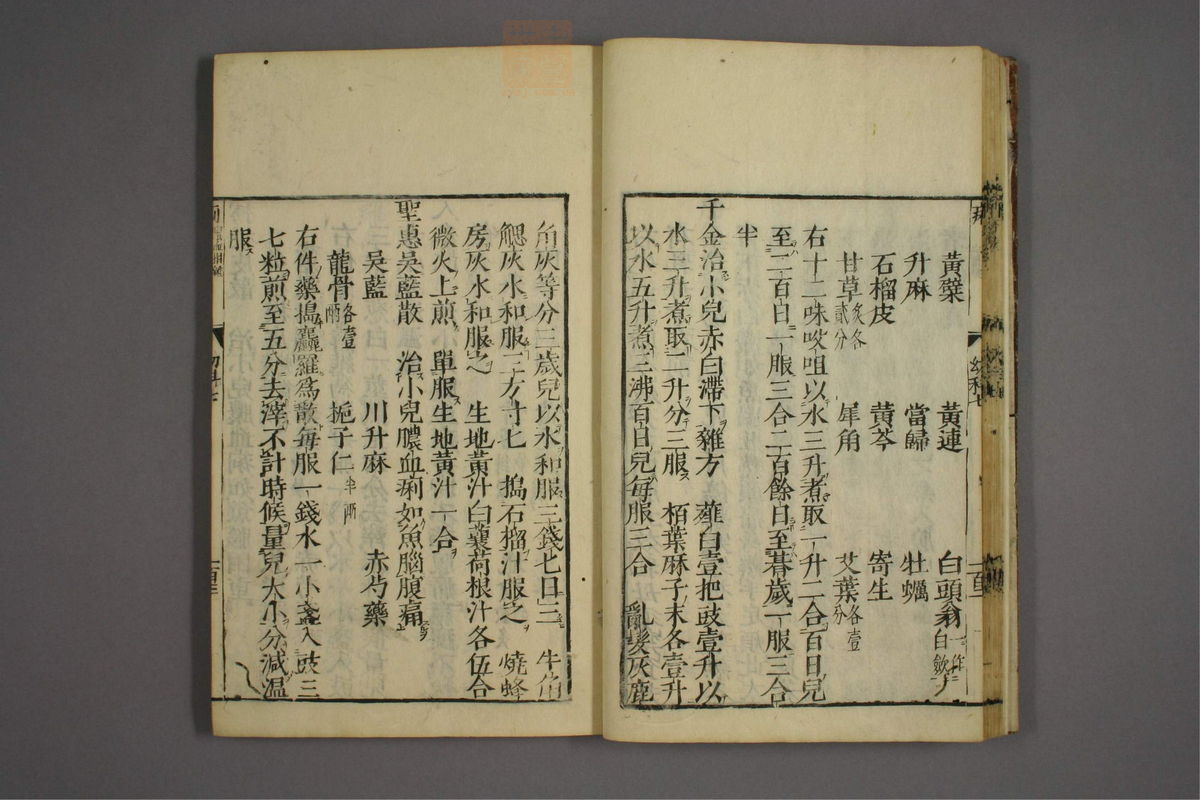 黃蘗 黃連 白頭翁一作白斂
升麻 當歸 牡蠣
石榴皮 黃芩 寄生
甘草炙各貳分 犀角 艾葉各壹分
右十二味㕮咀以水三升煮取一升二合百日兒
至二百日一服三合二百餘日至朞歲一服三合
半
千金治小兒赤白滯下雜方 薤白壹把豉壹升以
水三升煮取二升分三服 栢葉麻子末各壹升
以水五升煮三沸百日兒每服三合 亂髮灰鹿
角灰等分三歲兒以水和服三錢七日三 牛角
䚡灰水和服三方寸匕 搗石榴汁服之 燒蜂
房灰水和服之 生地黃汁白蘘荷根汁各伍合
微火上煎 單服生地黃汁一合
聖惠吳藍散 治小兒膿血痢如魚腦腹痛
吳藍 川升麻 赤芍藥
龍骨各壹兩 梔子仁半兩
右件藥搗麤羅爲散每服一錢水一小盞入豉三
七粒煎至五分去滓不計時候量兒大小分減温
服